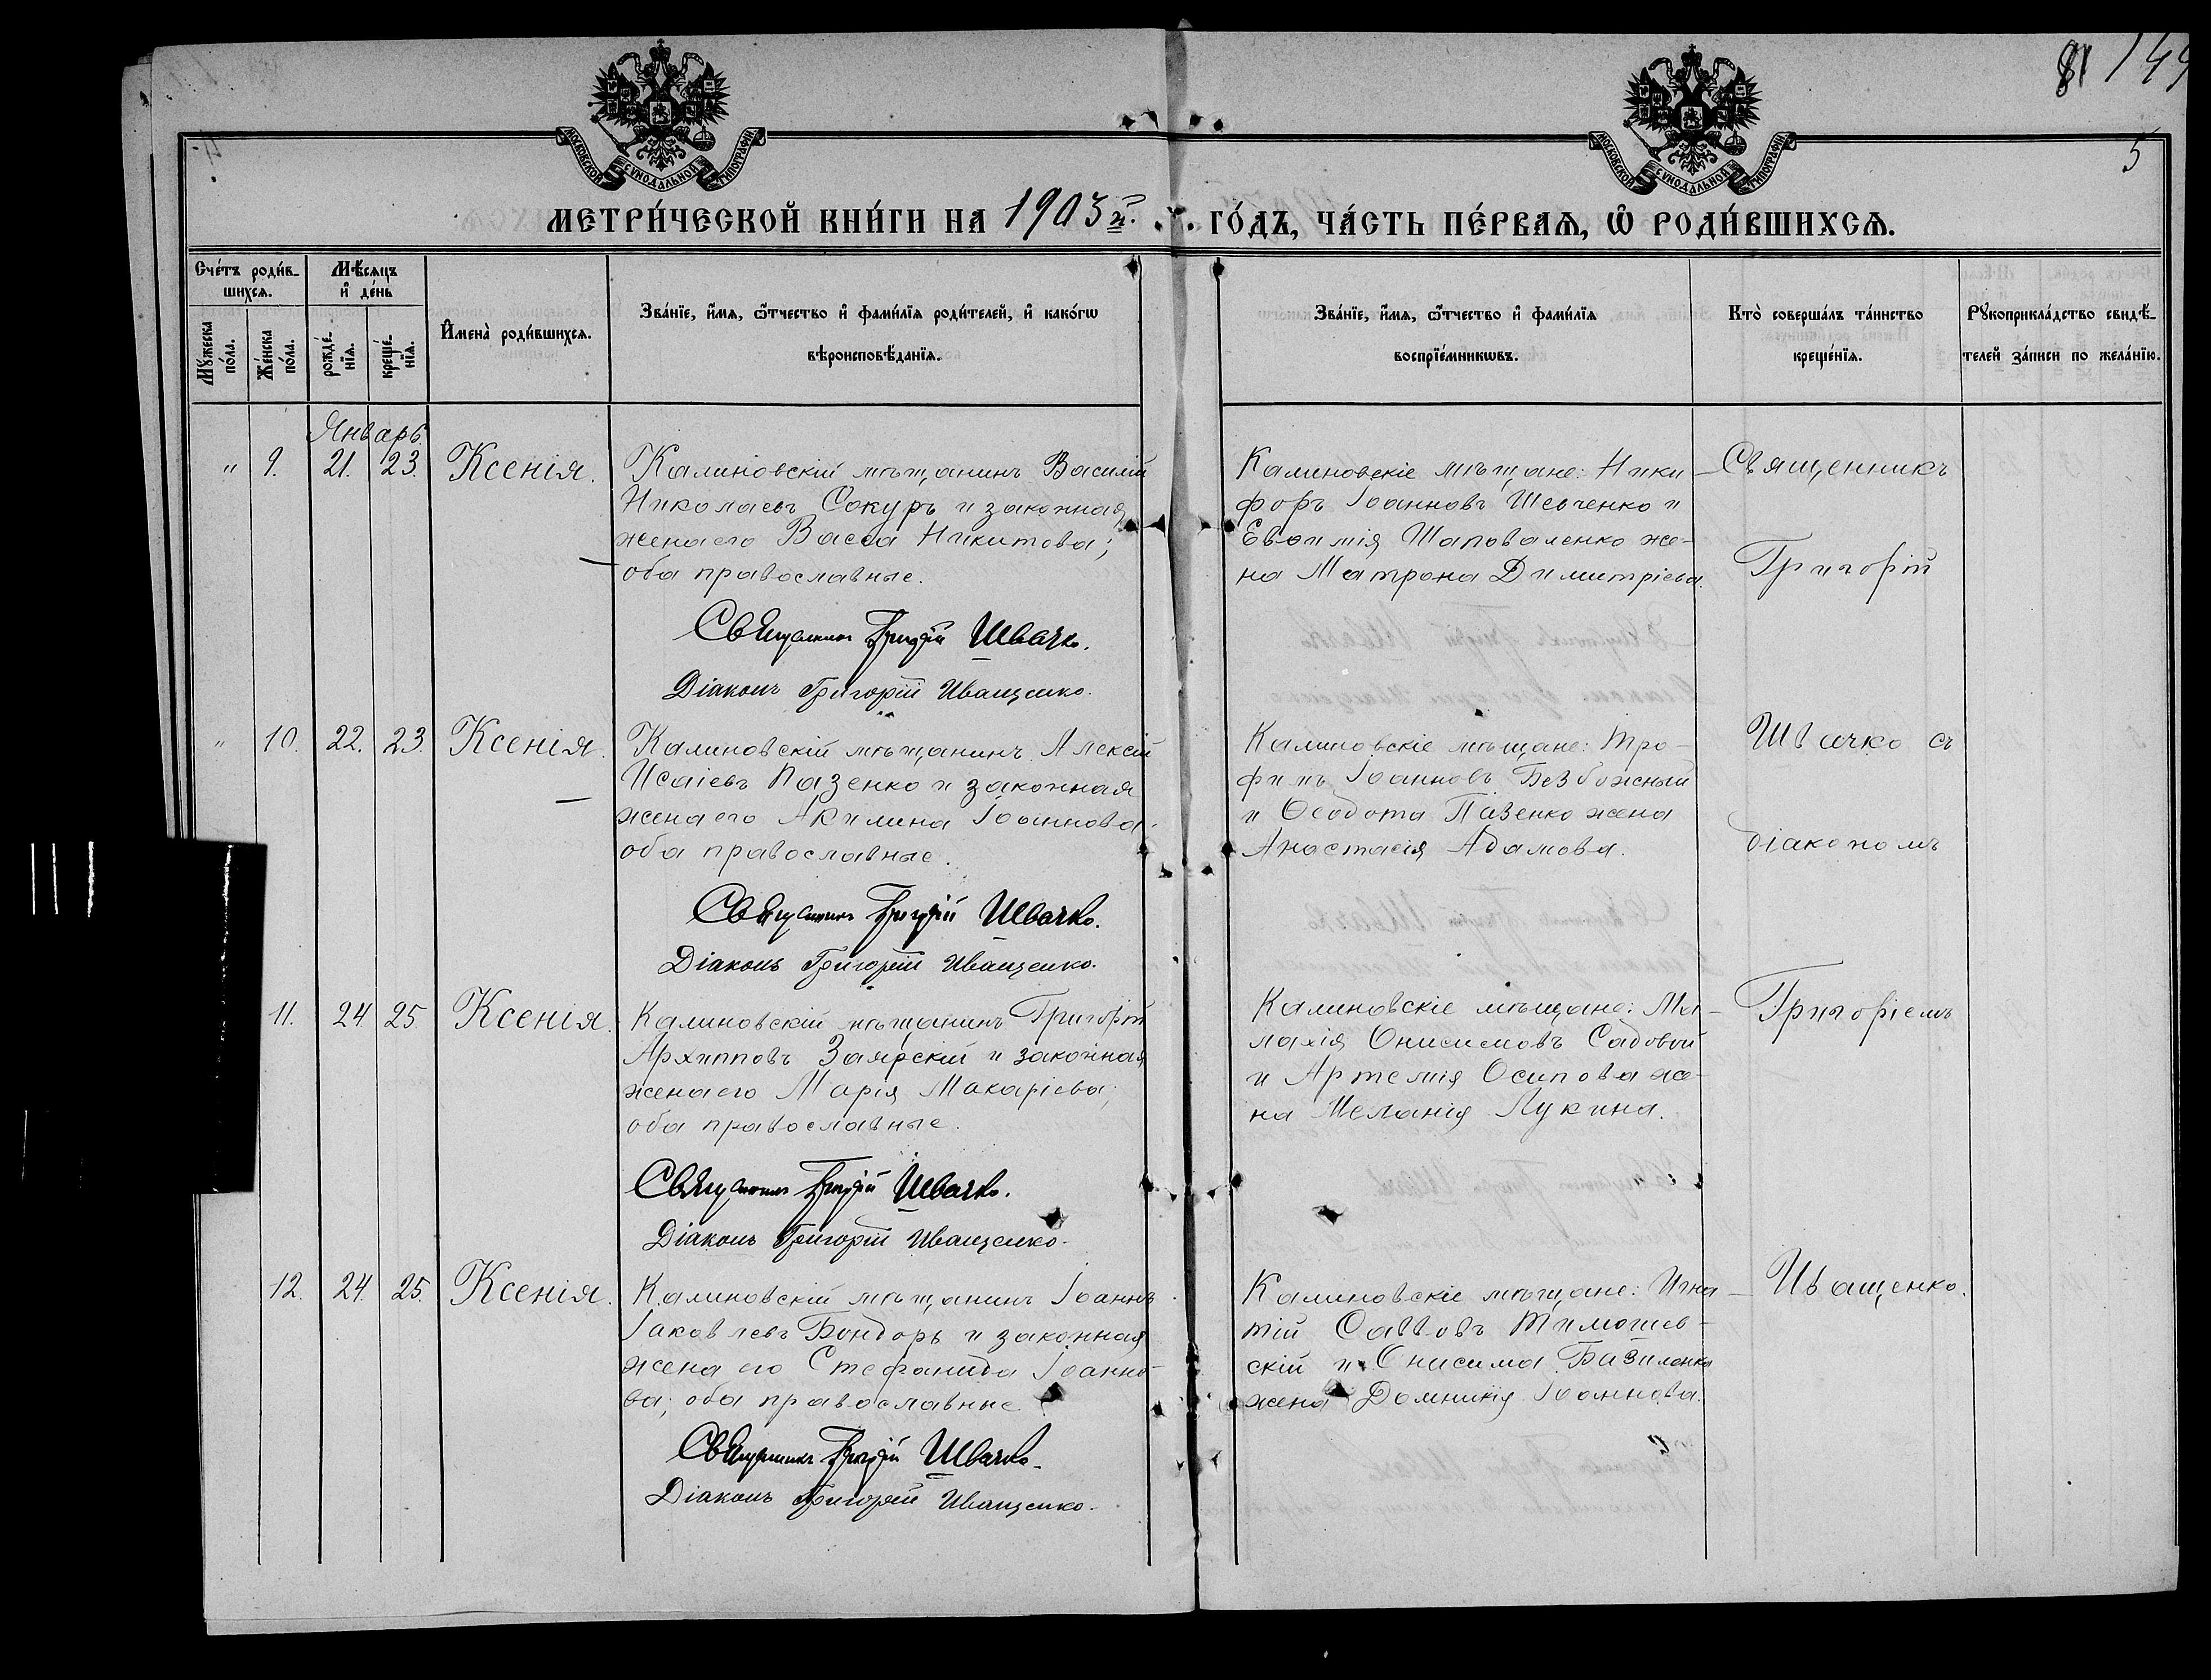 81 149
5
МОСКОВСКОЙ СѴНОДАЛЬНОЙ ТИПОГРАФІИ
МОСКОВСКОЙ СѴНОДАЛЬНОЙ ТИПОГРАФІИ
МЕТРИ́ЧЕСКОЙ КНИ́ГИ НА 1903й. ГО́ДЪ, ЧА́СТЬ ПЕ́РВАѦ, Ѽ РОДИ́ВШИХСѦ.
Сче́тъ роди́в-
шихсѧ.
Мꙋжеска по́ла.
Же́нска по́ла.
Мѣ́сѧцъ
и҆ де́нь
рожде́-
нїѧ.
креще́-
нїѧ.
И҆мена̀ роди́вшихсѧ.
Зва́нїе, и҆́мѧ, ѻ҆́тчество и҆ фами́лїѧ роди́телей, и҆ како́гѡ
вѣроисповѣ́данїѧ.
Зва́нїе, и҆́мѧ, ѻ҆́тчество и҆ фами́лїѧ
воспрїе́мникѡвъ.
Кто̀ соверша́лъ та́инство
креще́нїѧ.
Рꙋкоприкла́дство свидѣ́-
телей за́писи по жела́нїю.
Январь.
" 9. 21. 23. Ксенія.
Калиновскій мѣщанинъ Василій
Николаевъ Сокуръ и законная
жена его Васса Никитова;
оба православные.
Священникъ Григорій Швачко.
Діаконъ Григорій Иващенко.
Калиновскіе мѣщане: Ники-
форъ Іоанновъ Шевченко и
Евѳимія Шаповаленко же-
на Матрона Димитріева.
Священникъ
Григорій
" 10. 22. 23. Ксенія.
Калиновскій мѣщанинъ Алексій
Исаіевъ Пазенко и законная
жена его Акилина Іоаннова;
оба православные.
Священникъ Григорій Швачко.
Діаконъ Григорій Иващенко.
Калиновскіе мѣщане: Тро-
фимъ Іоанновъ Безбожный
и Ѳеодота Пазенко жена
Анастасія Адамова.
Швачко съ
діакономъ
11. 24 25 Ксенія.
Калиновскій мѣщанинъ Григорій
Архипповъ Заярскій и законная
жена его Марія Макаріева;
оба православные.
Священникъ Григорій Швачко.
Діаконъ Григорій Иващенко.
Калиновскіе мѣщане: Ма-
лахія Онисимовъ Садовой
и Артемія Осипова же-
на Меланія Лукина.
Григоріемъ
12. 24. 25. Ксенія.
Калиновскій мѣщанинъ Іоаннъ
Іаковлевъ Бондорь и законная
жена его Стефанида Іоанно-
ва; оба православные.
Священникъ Григорій Швачко.
Діаконъ Григорій Иващенко.
Калиновскіе мѣщане: Игна-
тій Саввовъ Тимошев-
скій и Онисима Базиленко
жена Домникія Іоаннова.
Иващенко.